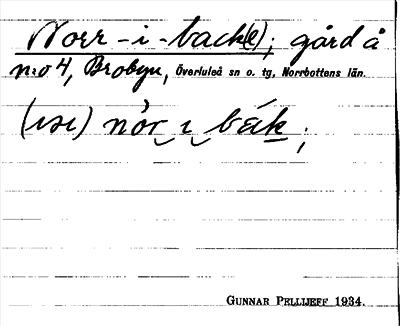 Norr-i-back(e); gård å
n:o 4, Brobyn, Överluleå sn o. tg, Norrbottens län.
(ısı) nȯr ı bák;
GUNNAR PELLIJEFF 1934.